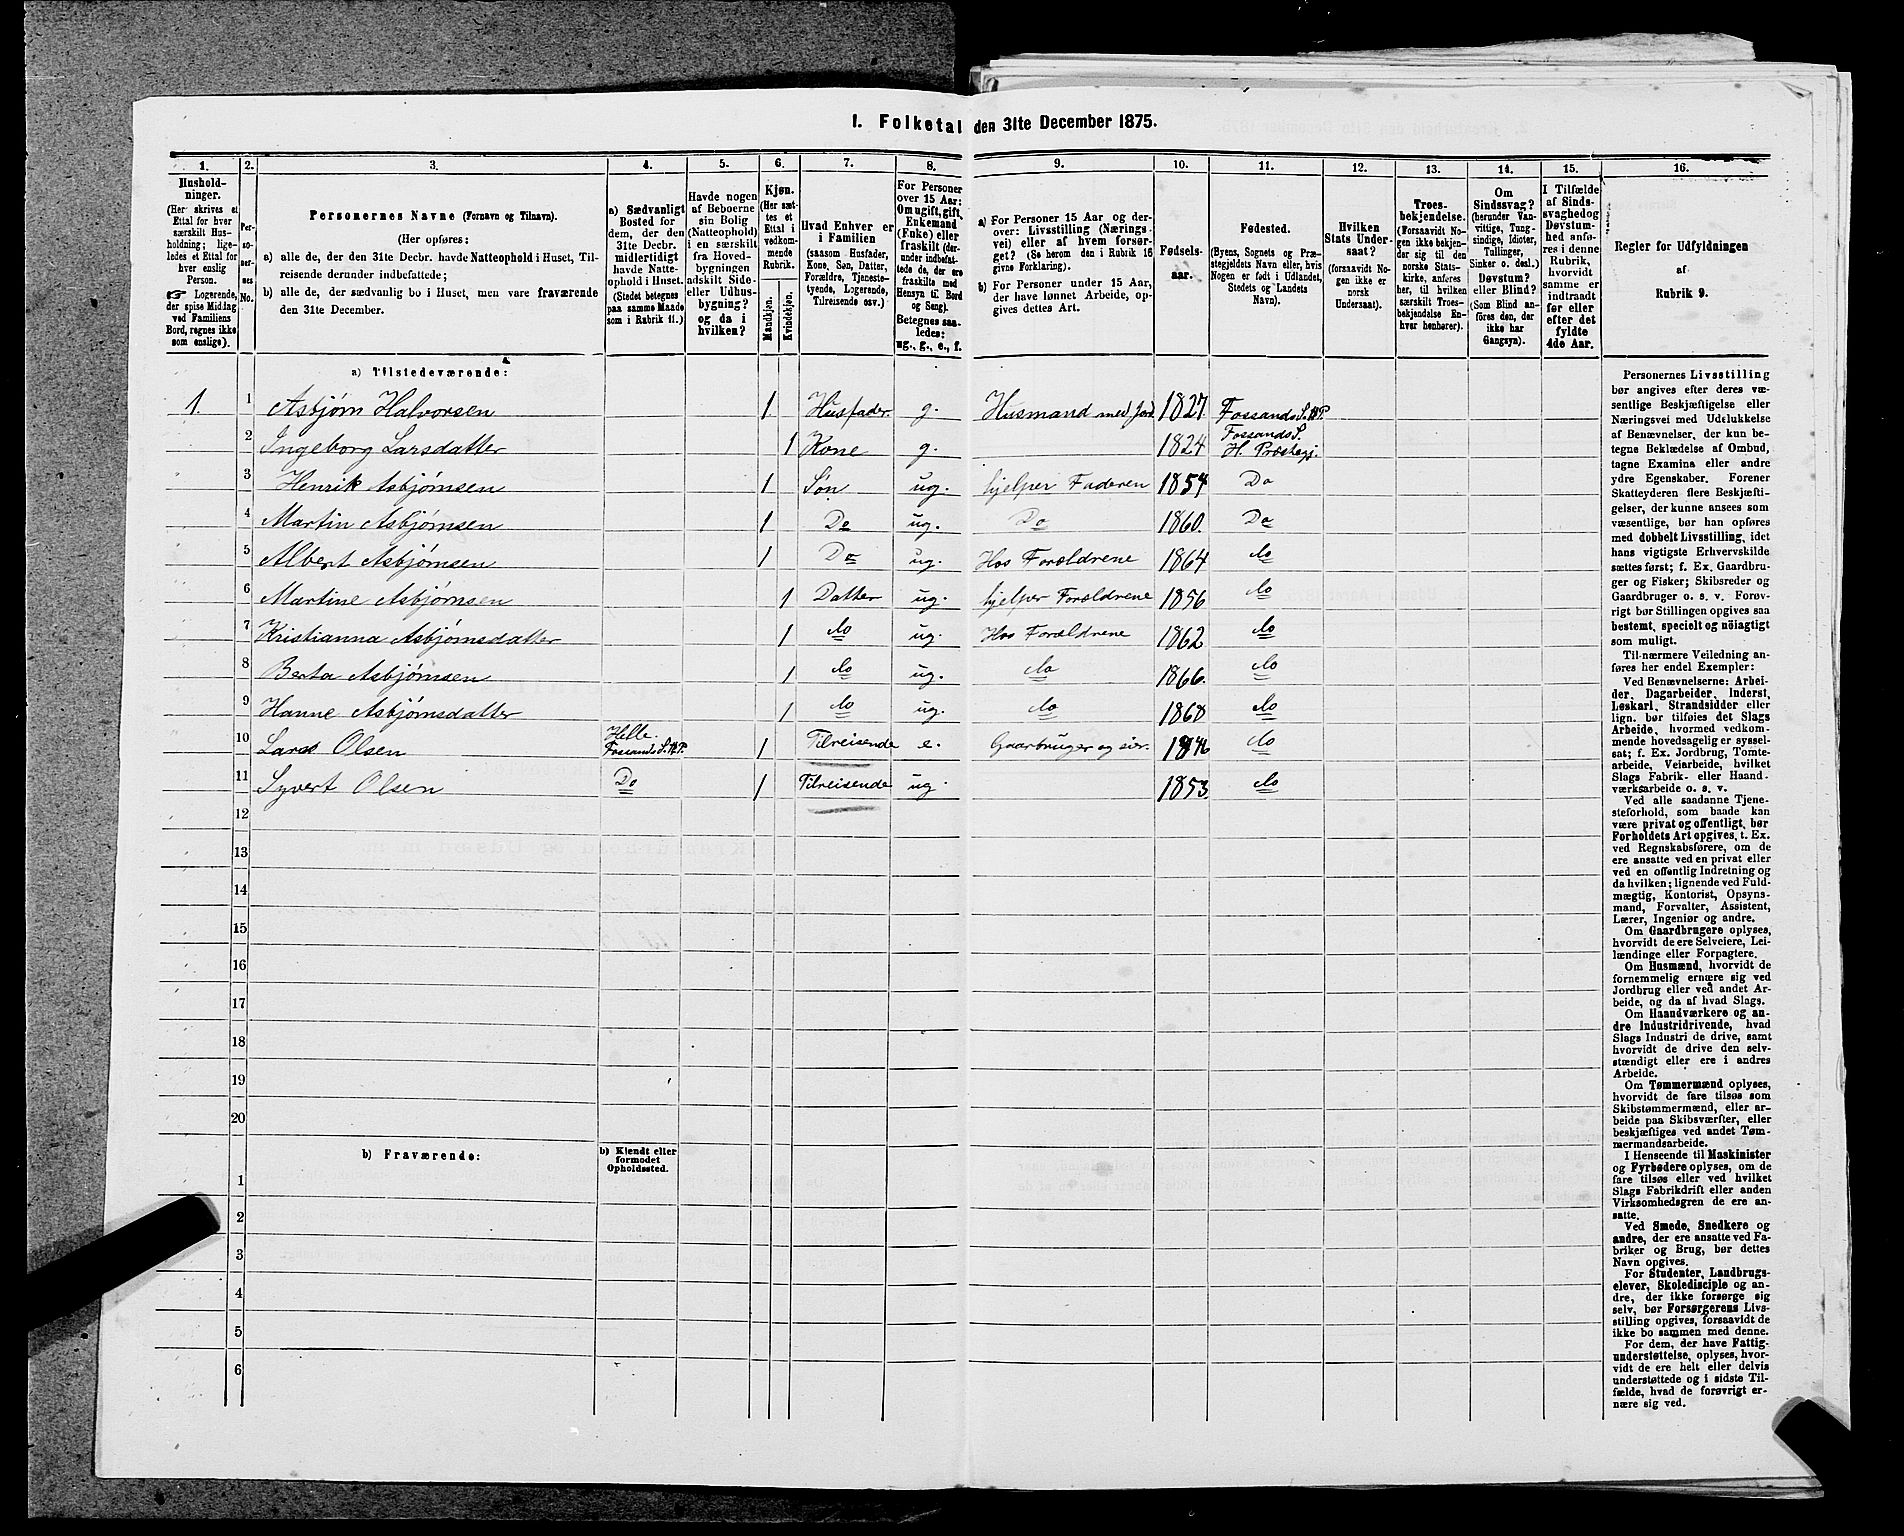 1. Folketal den 31te December 1875.
1. 2. 3. 4. 5. 6. 7. 8. 9. 10. 11. 12. 13. 14. 15. 16.
Hushold-
ninger.
(Her skrives et
Ettal for hver
særskilt Hus-
holdning; lige-
ledes et Ettal for
hver enslig
Person.
☞ Logerende,
der spise Middag
ved Familiens
Bord, regnes ikke
som enslige).
Per-
so-
ner-
nes
No.
Personernes Navne (Fornavn og Tilnavn).
(Her opføres:
a) alle de, der den 31te Decbr. havde Natteophold i Huset, Til-
reisende derunder indbefattede;
b) alle de, der sædvanlig bo i Huset, men vare fraværende
den 31te December.
a) Sædvanligt
Bosted for
dem, der den
31te Decbr.
midlertidigt
havde Natte-
ophold i Huset.
(Stedet betegnes
paa samme Maade
som i Rubrik 11.)
Havde nogen
af Beboerne
sin Bolig
(Natteophold)
i en særskilt
fra Hoved-
bygningen
adskilt Side-
eller Udhus-
bygning?
og da i
hvilken?
Kjøn.
(Her sæt-
tes et
Ettal i
vedkom-
mende
Rubrik.
Mandkjøn.
Kvindekjøn.
Hvad Enhver er
i Familien
(saasom Husfader,
Kone, Søn, Datter,
Forældre, Tjeneste-
tyende, Logerende,
Tilreisende osv.)
For Personer
over 15 Aar:
Om ugift, gift,
Enkemand
(Enke) eller
fraskilt (der-
under indbefat-
tede de, der ere
fraskilte med
Hensyn til Bord
og Seng).
Betegnes saa-
ledes:
ug., g., e., f.
a) For Personer 15 Aar og der-
over: Livsstilling (Nærings-
vei) eller af hvem forsør-
get? (Se herom den i Rubrik 16
givne Forklaring).
b) For Personer under 15 Aar,
der have lønnet Arbeide, op-
gives dettes Art.
Fødsels-
aar.
Fødested.
(Byens, Sognets og Præ-
stegjeldets Navn eller, hvis
Nogen er født i Udlandet,
Stedets og Landets
Navn).
Hvilken
Stats Under-
saat?
(forsaavidt No-
gen ikke er
norsk
Undersaat).
Troes-
bekjendelse.
(Forsaavidt No-
gen ikke bekjen-
der sig til den
norske Stats-
kirke, anføres
her, til hvilken
særskilt Troes-
bekjendelse En-
hver henhører).
Om
Sindssvag?
(herunder Van-
vittige, Tung-
sindige, Idioter,
Tullinger,
Sinker o. desl.)
Døvstum?
eller Blind?
(Som Blind an-
føres den, der
ikke har
Gangsyn).
I Tilfælde
af Sinds-
svaghed og
Døvstum-
hed anfø-
res i denne
Rubrik,
hvorvidt
samme er
indtraadt
før eller
efter det
fyldte
4de Aar.
Regler for Udfyldningen
af
Rubrik 9.
a) Tilstedeværende:
1. 1 Asbjørn Halvorsen 1 Husfader g. Husmand med Jord 1827. Fossands S. H P.
2 Ingeborg Larsdatter 1 Kone g. 1824 Fossands S. H. Præstegj.
3 Henrik Asbjørnsen 1 Søn ug. hjelper Faderen 1854 Do
4 Martin Asbjørnsen 1 Do ug. Do 1860. Do
5 Albert Asbjørnsen 1 Do ug. Hos Forældrene 1864 do
6 Martine Asbjørnsen 1 Datter ug. hjelper Forældrene 1856 do
7 Kristianna Asbjørnsdatter 1 do ug. Hos Forældrene 1862 do
8 Berta Asbjørnsen 1 do ug. do 1866. do
9 Hanne Asbjørnsdatter 1 do ug. do 1868 do
10 Lars Olsen Helle. Fossands S. H P. 1 Tilreisende e. Gaarbruger og 1846 do
11 Syvert Olsen Do 1 Tilreisende ug. 1853. do
12
13
14
15
16
17
18
19
20
b) Fraværende:
b) Kjendt eller
formodet
Opholdssted.
1
2
3
4
5
6
Personernes Livsstilling
bør angives efter deres væ-
sentlige Beskjæftigelse eller
Næringsvei med Udelukkelse
af Benævnelser, der kun be-
tegne Beklædelse af Ombud,
tagne Examina eller andre
ydre Egenskaber. Forener
Skatteyderen flere Beskjæfti-
gelser, der kunne ansees som
væsentlige, bør han opføres
med dobbelt Livsstilling, idet
hans vigtigste Erhvervskilde
sættes først; f. Ex. Gaardbru-
ger og Fisker; Skibsreder og
Gaardbruger o. s. v. Forøv-
rigt bør Stillingen opgives saa
bestemt, specielt og nöiagtigt
som muligt.
Til nærmere Veiledning an-
føres her endel Exempler:
Ved Benævnelserne: Arbei-
der, Dagarbeider, Inderst,
Løskarl, Strandsidder eller
lign. bør tilføies det Slags
Arbeide, hvormed vedkom-
mende hovedsagelig er syssel-
sat; f. Ex. Jordbrug, Tomte-
arbeide, Veiarbeide, hvilket
Slags Fabrik- eller Haand-
værksarbeide o. s. v.
Ved alle saadanne Tjene-
steforhold, som baade kan
være privat og offentligt, bør
Forholdets Art opgives, t. Ex.
ved Regnskabsførere, om de
ere ansatte ved en privat eller
ved en offentlig Indretning og
da hvilken; lignende ved Fuld-
mægtig, Kontorist, Opsyns-
mand, Forvalter, Assistent,
Lærer, Ingeniør og andre.
Om Gaardbrugere oplyses,
hvorvidt de ere Selveiere, Lei-
lændinge eller Forpagtere.
Om Husmænd, hvorvidt de
fornemmelig ernære sig ved
Jordbrug eller ved andet Ar-
beide, og da af hvad Slags.
Om Haandværkere og an-
dre Industridrivende, hvad
Slags Industri de drive, samt
hvorvidt de drive den selv-
stændigt eller ere i andres
Arbeide.
Om Tømmermænd oplyses,
hvorvidt de fare tilsøs som
Skibstømmermænd, eller ar-
beide paa Skibsværfter, eller
beskjæftiges ved andet Tøm-
mermandsarbeide.
I Henseende til Maskinister
og Fyrbødere oplyses, om de
fare tilsøs eller ved hvilket
Slags Fabrikdrift eller anden
Virksomhedsgren de ere an-
satte.
Ved Smede, Snedkere og
andre, der ere ansatte ved Fa-
briker og Brug, bør dettes
Navn opgives.
For Studenter, Landbrugs-
elever, Skoledisciple og an-
dre, der ikke forsørge sig
selv, bør Forsørgerens Livs-
stilling opgives, forsaavidt de
ikke bo sammen med denne.
For dem, der have Fattig-
understøttelse, oplyses, hvor-
vidt de ere helt eller delvis
understøttede og i sidste Til-
fælde, hvad de forøvrigt er-
nære sig ved.